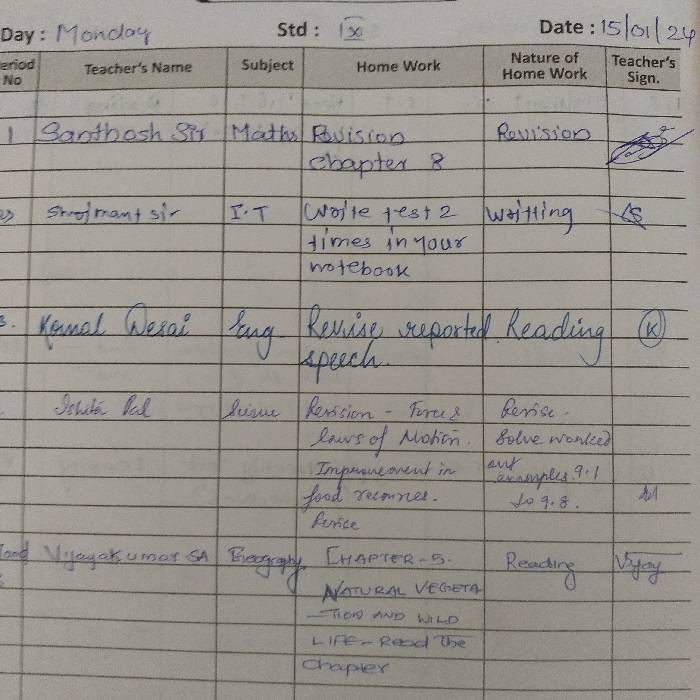 Day : Monday Std : IX Date : 15/01/24
eriod No Teacher's Name Subject Home Work Nature of Home Work Teacher's Sign.
1 Santhosh Sir Maths Revision Revision
chapter 8
Shrimant sir I.T Write test 2 Writting
times in your
notebook
3. Komal Desai Eng Revise reported Reading K
speech.
Ishita Pal Science Revision - Force & Revise.
laws of Motion. Solve worked
Improvement in out examples 9.1
food resources. to 9.8.
Revise
and Vijayakumar SA Geography CHAPTER-5. Reading Vijay
NATURAL VEGETA
-TION AND WILD
LIFE- Read The
Chapter